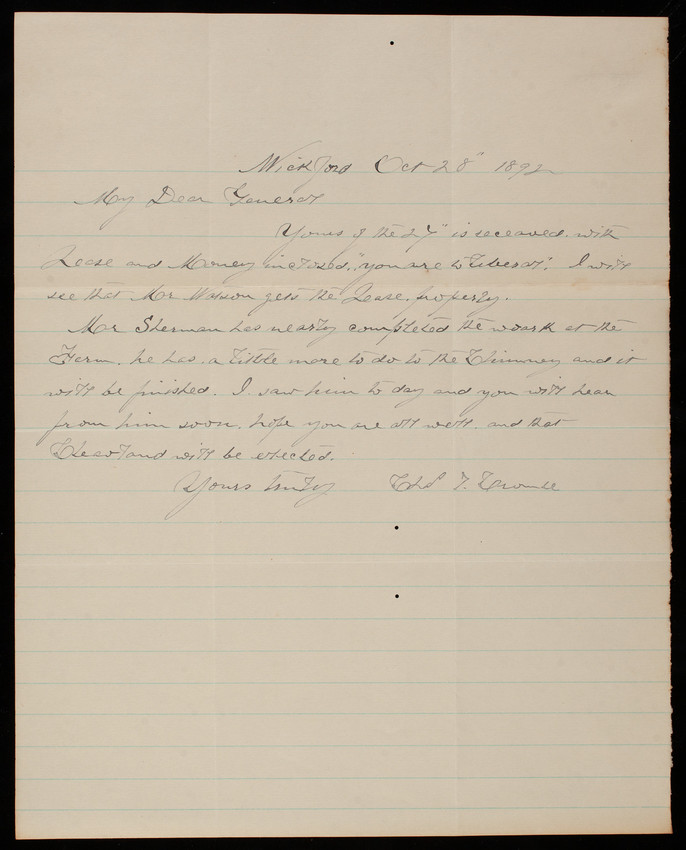 Wickford Oct 28" 1892
My Dear General
Yours of the 27" is receaved. with
Lease and Money inclosed. "you are to liberal". I will
see that Mr Watson gets the Lease, properly.
Mr Sherman has nearly completed the woark at the
Farm. he has. a little more to do to the Chimney and it
will be finished. I. saw him to day and you will hear
from him soon. hope you are all well. and that
Cleavland will be elected.
Yours truly Chs T.